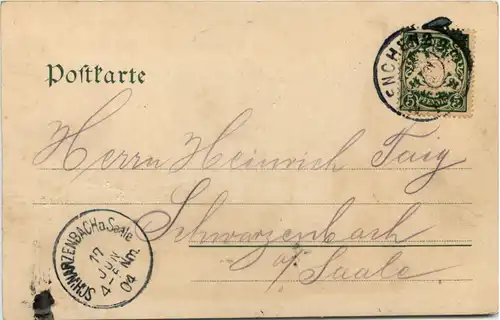 ENCHEN
5 PFENNIG 5
Postkarte
Herrn Heinrich Taig
Schwarzenbach
a/ Saale
SCHWARZENBACH a. Saale
17
JUN
4-5 Nm.
04